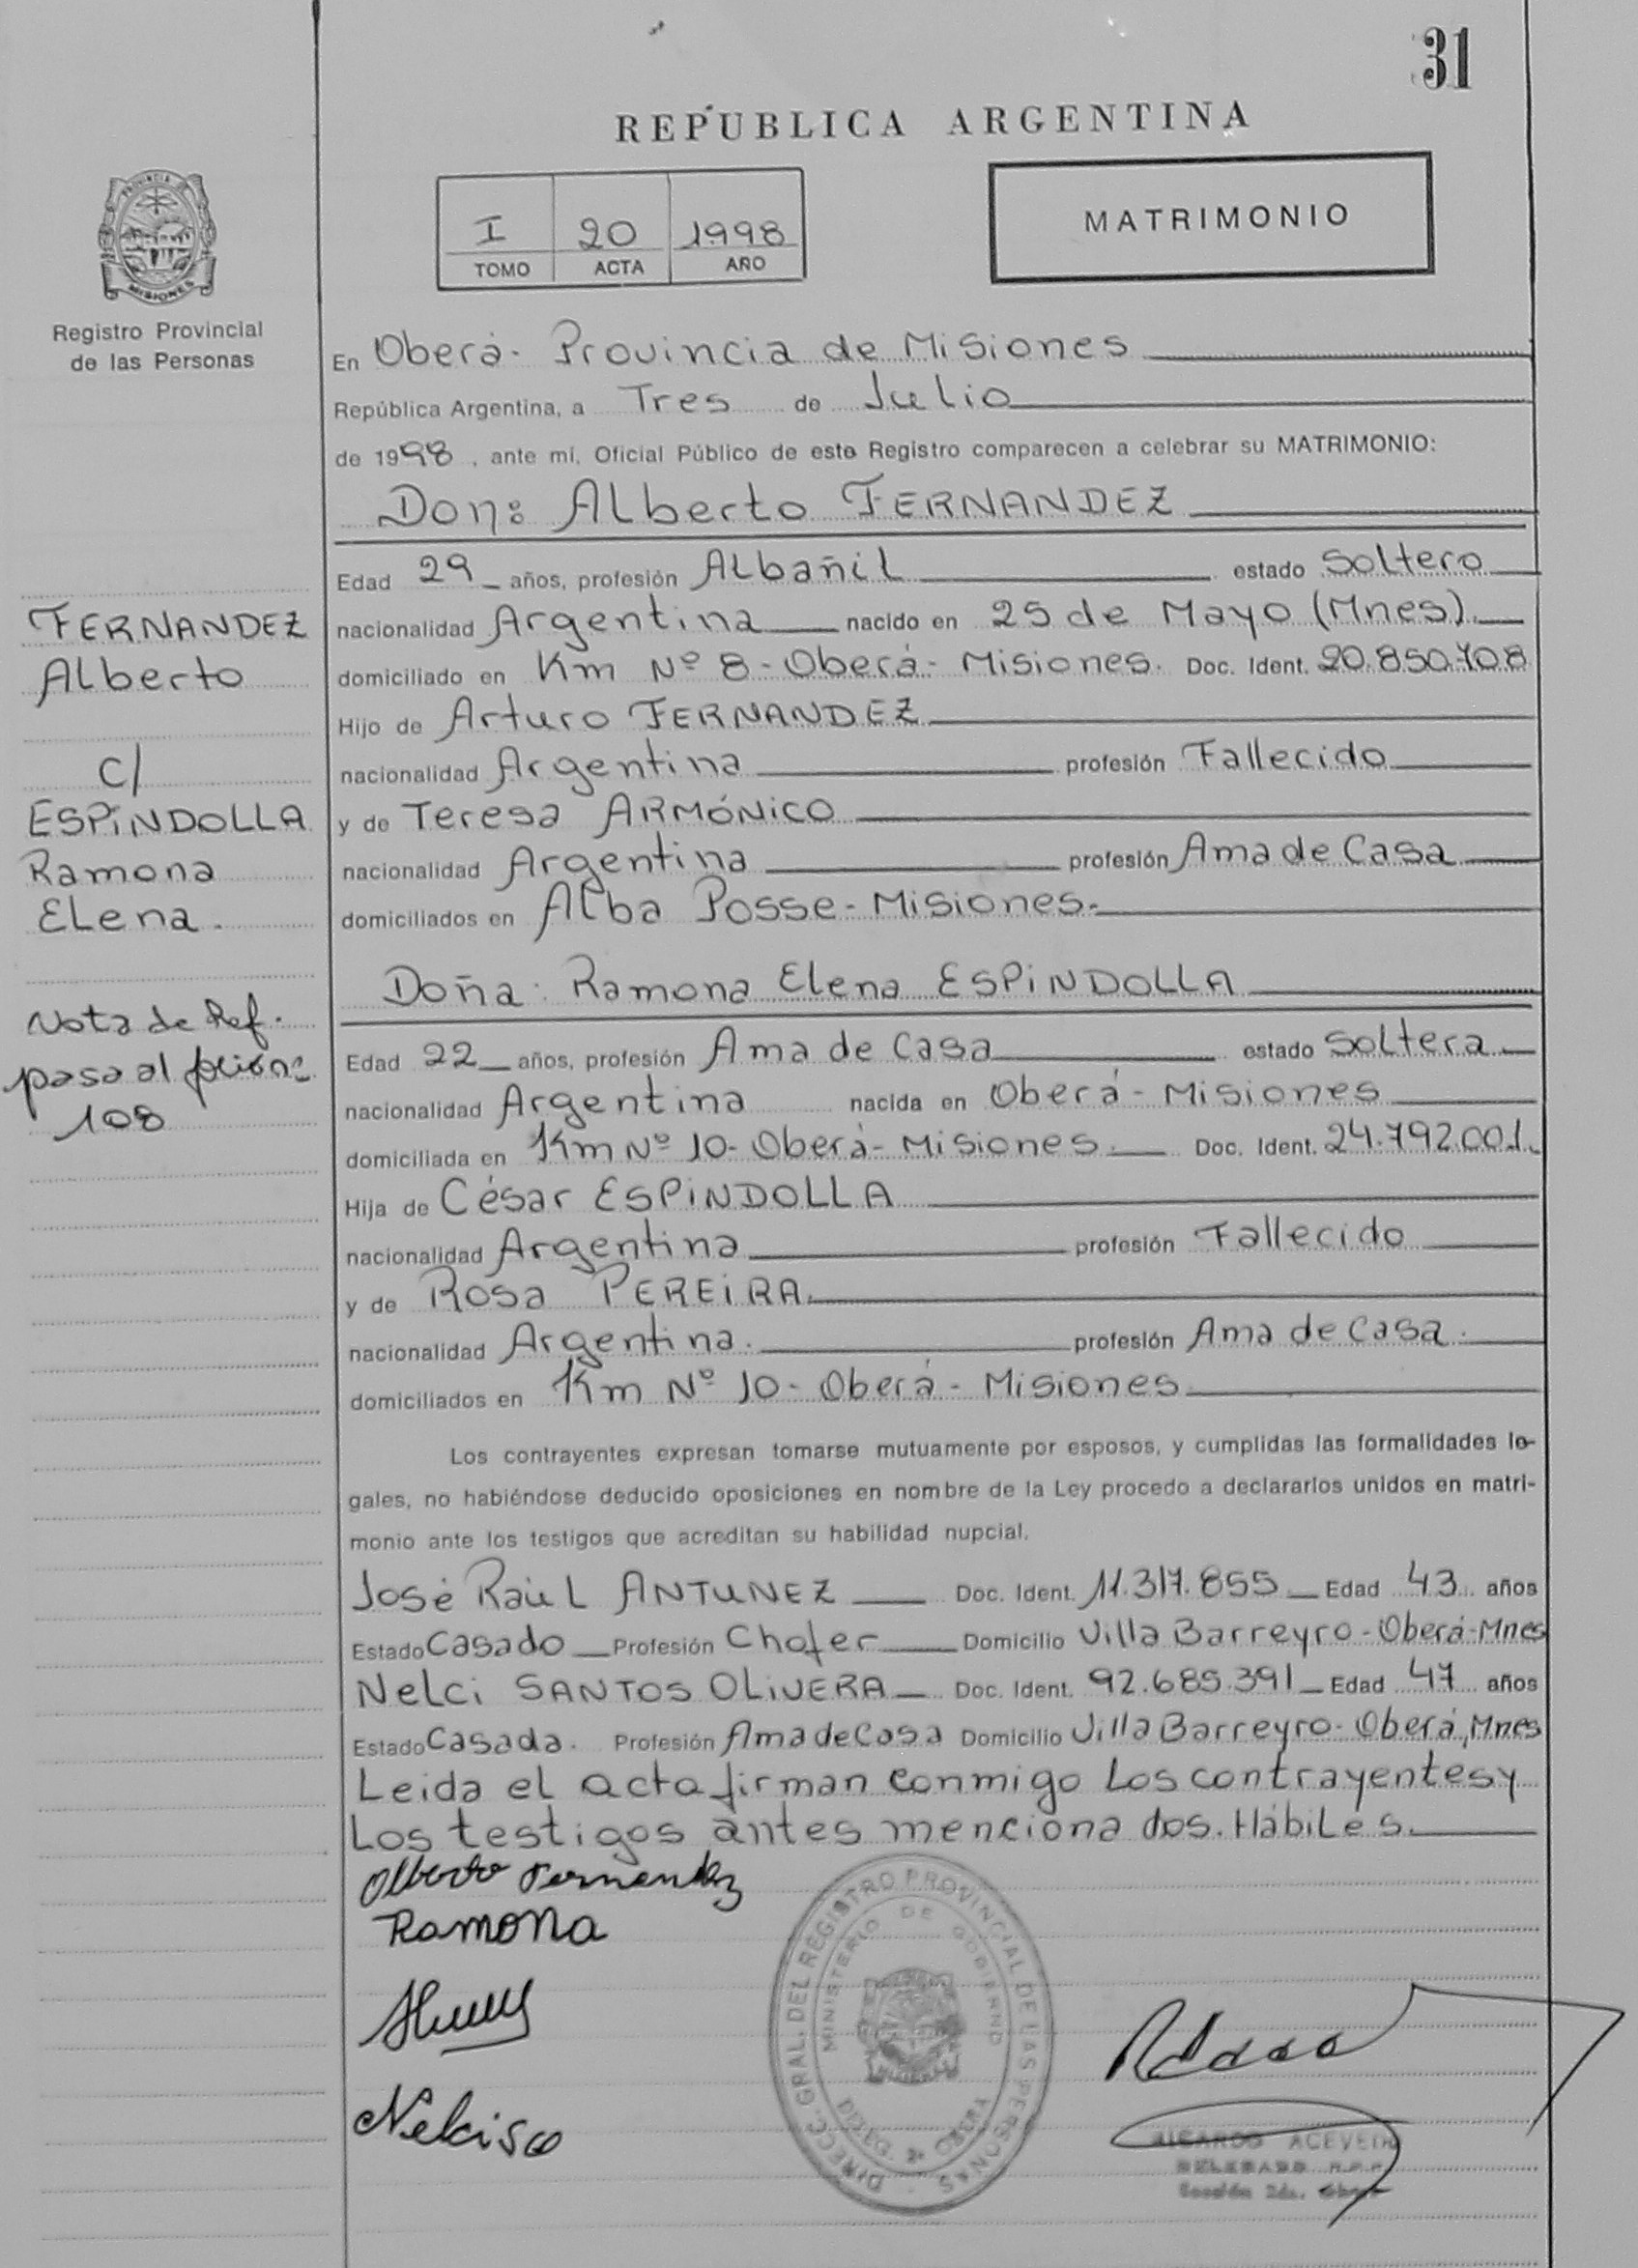 31
REPUBLICA ARGENTINA
I 20 1998
TOMO ACTA AÑO
MATRIMONIO
PROVINCIA DE
MISIONES
Registro Provincial
de las Personas
En Oberá - Provincia de Misiones
República Argentina, a Tres de Julio
de 1998, ante mí, Oficial Público de este Registro comparecen a celebrar su MATRIMONIO:
Don: Alberto FERNANDEZ
Edad 29 años, profesión Albañil estado Soltero
nacionalidad Argentina nacido en 25 de Mayo (Mnes).
domiciliado en Km Nº 8 - Oberá - Misiones. Doc. Ident. 20.850.708
Hijo de Arturo FERNANDEZ
nacionalidad Argentina profesión Fallecido
y de Teresa ARMÓNICO
nacionalidad Argentina profesión Ama de Casa
domiciliados en Alba Posse - Misiones.
Doña: Ramona Elena ESPINDOLLA
Edad 22 años, profesión Ama de Casa estado Soltera
nacionalidad Argentina nacida en Oberá - Misiones
domiciliada en Km Nº 10 - Oberá - Misiones. Doc. Ident. 24.792.001.
Hija de César ESPINDOLLA
nacionalidad Argentina profesión Fallecido
y de Rosa PEREIRA.
nacionalidad Argentina. profesión Ama de Casa.
domiciliados en Km Nº 10 - Oberá - Misiones
FERNANDEZ
Alberto
C/
ESPINDOLLA
Ramona
Elena.
Nota de Ref.
pasa al
108
Los contrayentes expresan tomarse mutuamente por esposos, y cumplidas las formalidades le-
gales, no habiéndose deducido oposiciones en nombre de la Ley procedo a declararlos unidos en matri-
monio ante los testigos que acreditan su habilidad nupcial.
José Raúl ANTUNEZ Doc. Ident. 11.317.855 Edad 43 años
Estado Casado Profesión Chofer Domicilio Villa Barreyro - Oberá - Mnes
Nelci SANTOS OLIVERA Doc. Ident. 92.685.391 Edad 47 años
Estado Casada. Profesión Ama de Casa Domicilio Villa Barreyro - Oberá, Mnes
Leida el acta firman conmigo Los contrayentes y
Los testigos antes menciona dos. Hábiles.
Alberto Fernandez
Ramona
DIRECC. GRAL. DEL REGISTRO PROVINCIAL DE LAS PERSONAS
MINISTERIO DE GOBIERNO
DELEG. 2ª OBERA
RICARDO ACEVEDO
DELEGADO R.P.P.
Sección 2da. Oberá